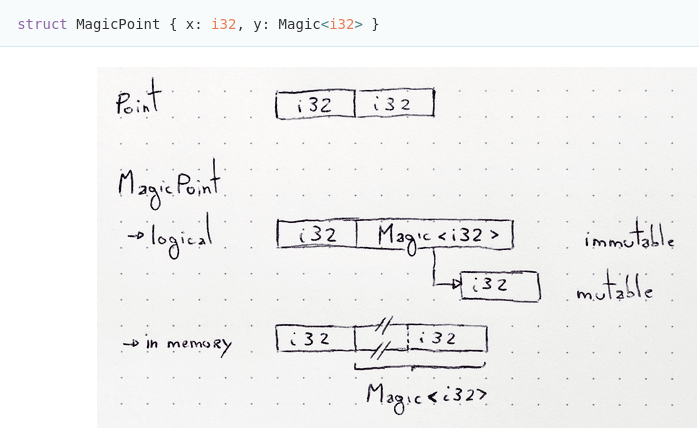 struct MagicPoint { x: i32, y: Magic<i32> }
Point i32 i32
MagicPoint
→ logical i32 Magic<i32> immutable
i32 mutable
→ in memory i32 i32
Magic<i32>